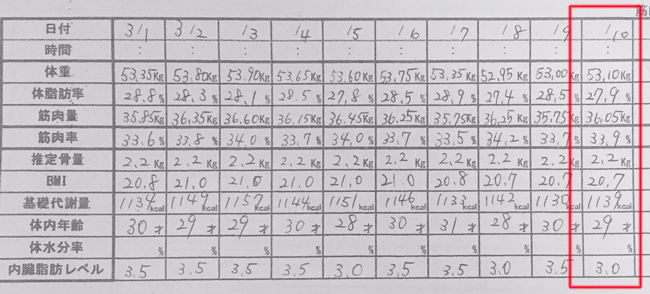 筋
日付 3/1 3/2 /3 /4 /5 /6 /7 /8 /9 /10
時間 : : : : : : : : : :
体重 53.35Kg 53.80Kg 53.90Kg 53.65Kg 53.60Kg 53.75Kg 53.35Kg 52.95Kg 53.00Kg 53.10Kg
体脂肪率 28.8% 28.3% 28.1% 28.5% 27.8% 28.5% 28.9% 27.4% 28.5% 27.9%
筋肉量 35.85Kg 36.35Kg 36.60Kg 36.15Kg 36.45Kg 36.25Kg 35.75Kg 36.25Kg 35.75Kg 36.05Kg
筋肉率 33.6% 33.8% 34.0% 33.7% 34.0% 33.7% 33.5% 34.2% 33.7% 33.9%
推定骨量 2.2Kg 2.2Kg 2.2Kg 2.2Kg 2.2Kg 2.2Kg 2.2Kg 2.2Kg 2.2Kg 2.2Kg
BMI 20.8 21.0 21.0 21.0 21.0 21.0 20.8 20.7 20.7 20.7
基礎代謝量 1139kcal 1149kcal 1157kcal 1144kcal 1151kcal 1146kcal 1133kcal 1142kcal 1130kcal 1139kcal
体内年齢 30才 29才 29才 30才 28才 30才 31才 28才 30才 29才
体水分率 % % % % % % % % % %
内臓脂肪レベル 3.5 3.5 3.5 3.5 3.0 3.5 3.5 3.0 3.5 3.0